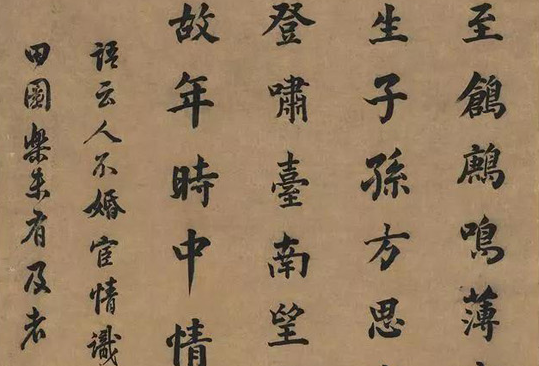 至鶬鶊鳴薄
生子孫方思
登嘯臺南望
故年時中情
語云人不婚宦情識
田園樂未有及者